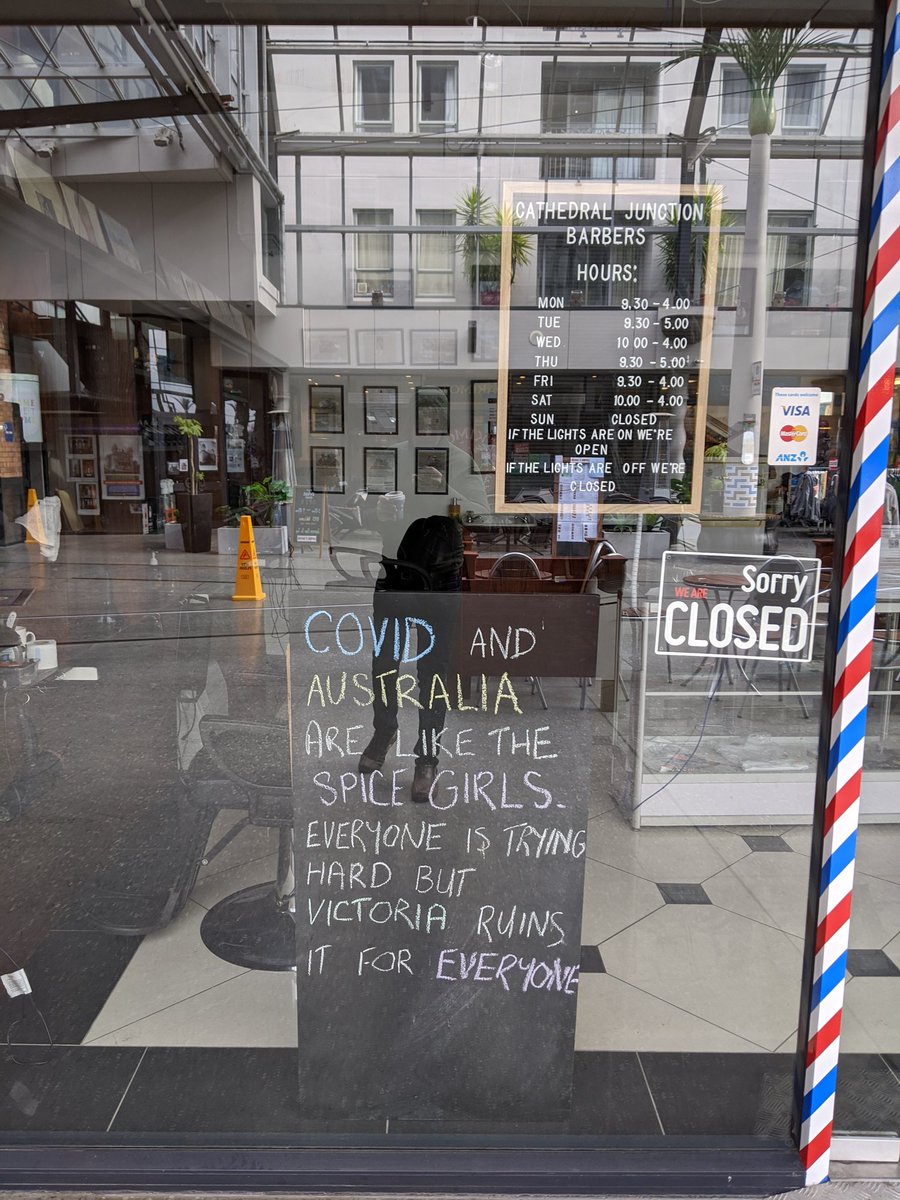 CATHEDRAL JUNCTION
BARBERS
HOURS:
MON 9.30 - 4.00
TUE 9.30 - 5.00
WED 10 00 - 4.00
THU 9.30 - 5.00
FRI 9.30 - 4.00
SAT 10.00 - 4.00
SUN CLOSED
IF THE LIGHTS ARE ON WE'RE
OPEN
IF THE LIGHTS ARE OFF WE'RE
CLOSED
These cards welcome
VISA
MasterCard
ANZ
Sorry
WE ARE
CLOSED
COVID AND
AUSTRALIA
ARE LIKE THE
SPICE GIRLS.
EVERYONE IS TRYING
HARD BUT
VICTORIA RUINS
IT FOR EVERYONE